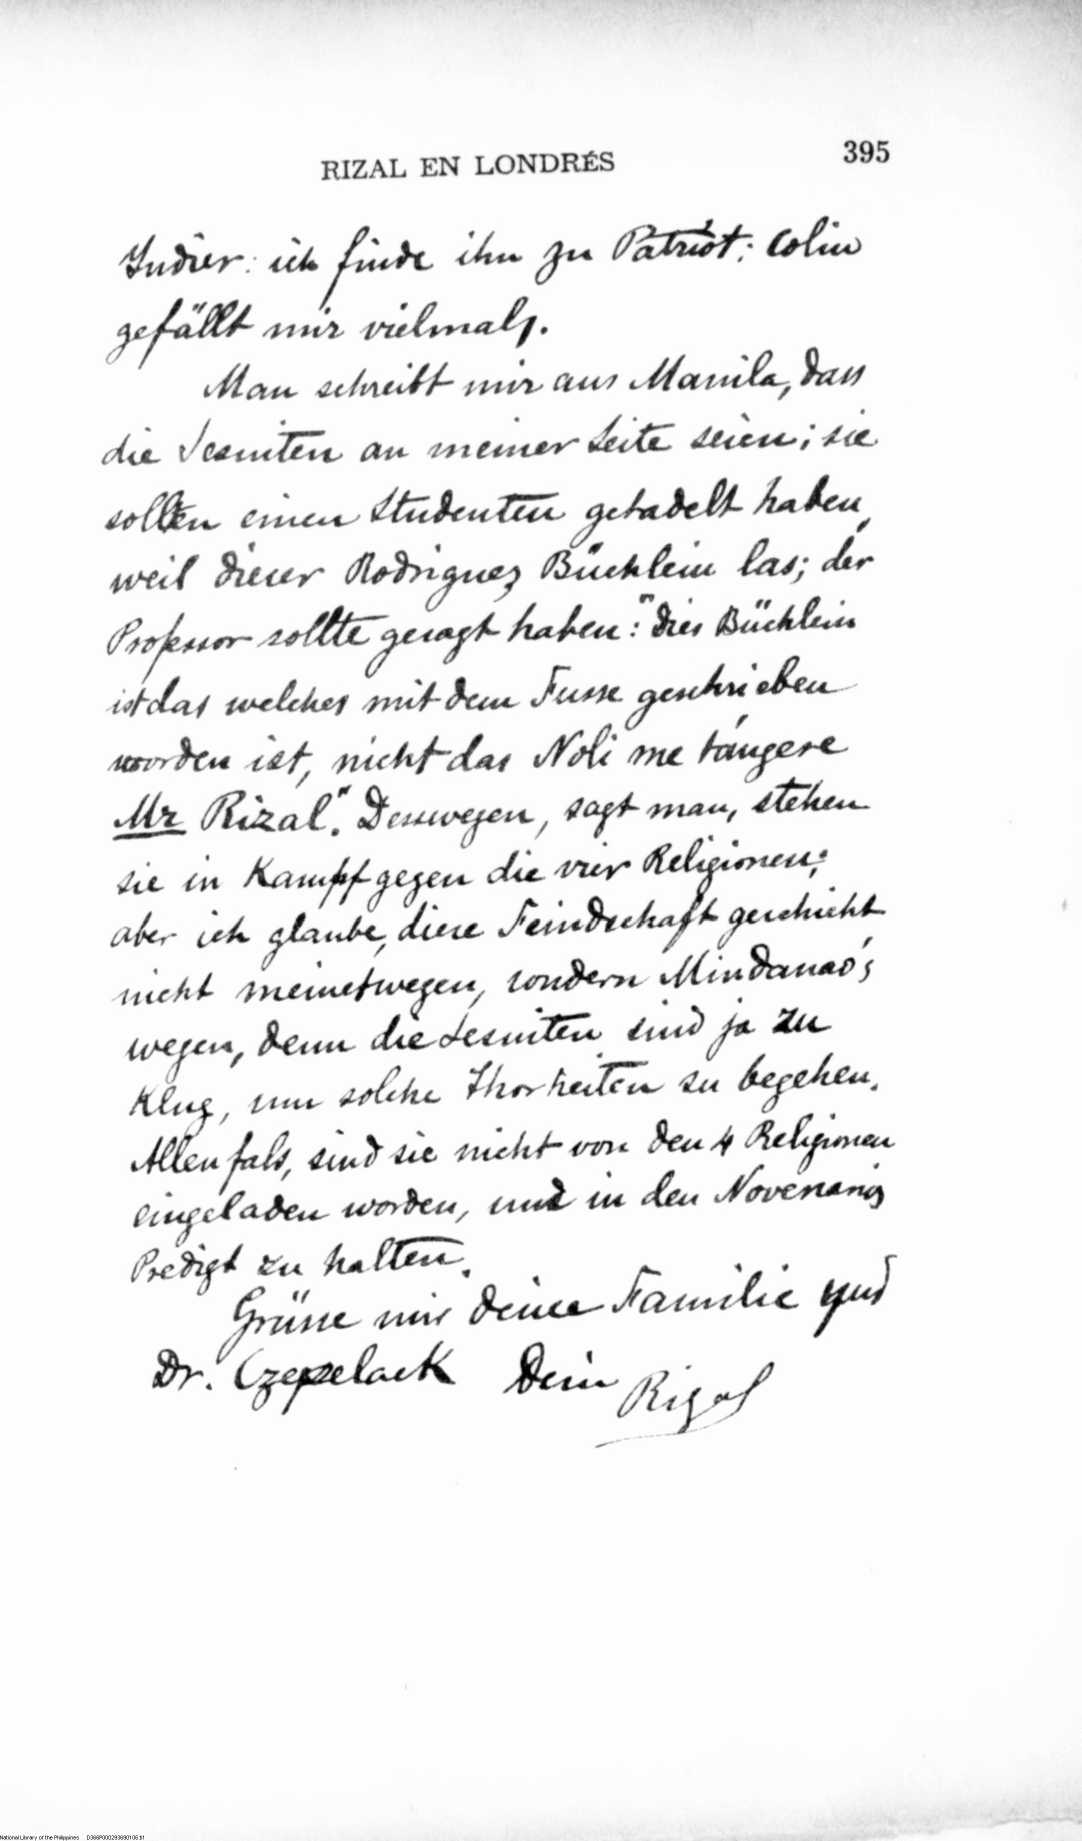 RIZAL EN LONDRÉS 395
Indier: ich finde ihn zu Patriot; Colin
gefällt mir vielmals.
Man schreibt mir aus Manila, dass
die Jesuiten an meiner Seite seien; sie
sollten einen Studenten getadelt haben,
weil dieser Rodriguez Büchlein las; der
Professor sollte gesagt haben: "dies Büchlein
ist das welches mit dem Fusse geschrieben
worden ist, nicht das Noli me tángere
Mr Rizal". Desswegen, sagt man, stehen
sie in Kampf gegen die vier Religionen;
aber ich glaube, diese Feindschaft geschieht
nicht meinetwegen, sondern Mindanao's
wegen, denn die Jesuiten sind ja zu
Klug, um solche Thorheiten zu begehen.
Allenfals, sind sie nicht von den 4 Religionen
eingeladen worden, und in den Novenarios
Predigt zu halten.
Grüsse mir deine Familie und
Dr. Czepelack Dein Rizal
National Library of the Philippines D366P000293690106.tif